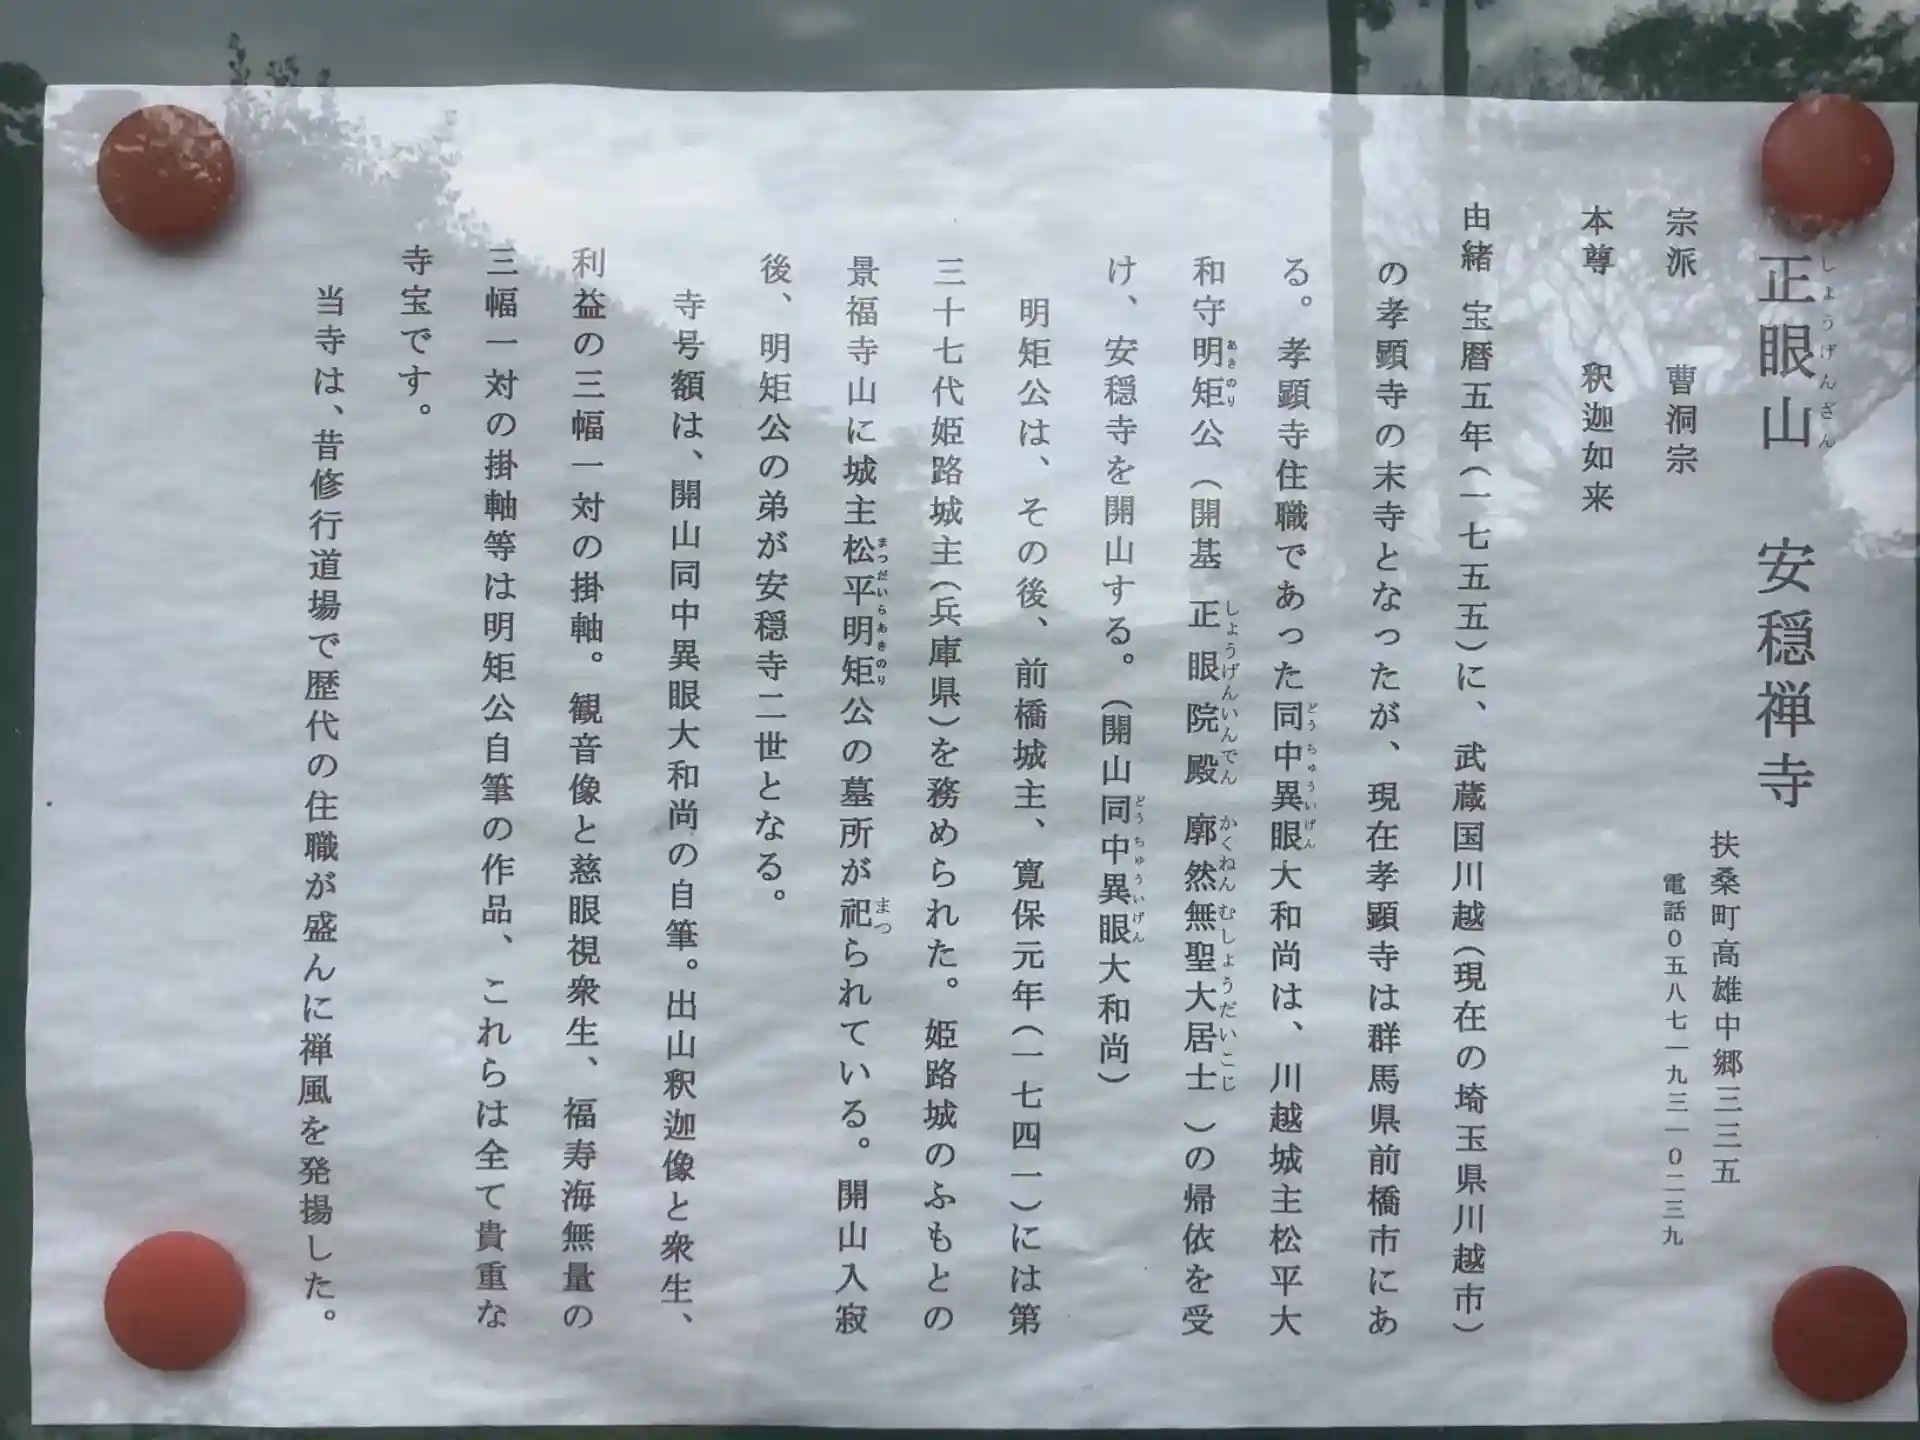 正眼山　安穏禅寺
しょうげんざん
扶桑町高雄中郷三三五
電話０五八七ー九三ー０二三九
宗派　　曹洞宗
本尊　　釈迦如来
由緒　宝暦五年（一七五五）に、武蔵国川越（現在の埼玉県川越市）
の孝顕寺の末寺となったが、現在孝顕寺は群馬県前橋市にあ
る。孝顕寺住職であった同中異眼大和尚は、川越城主松平大
どうちゅういげん
和守明矩公（開基　正眼院殿　廓然無聖大居士）の帰依を受
あきのり　しょうげんいんでん　かくねんむしょうだいこじ
け、安穏寺を開山する。（開山同中異眼大和尚）
どうちゅういげん
明矩公は、その後、前橋城主、寛保元年（一七四一）には第
三十七代姫路城主（兵庫県）を務められた。姫路城のふもとの
景福寺山に城主松平明矩公の墓所が祀られている。開山入寂
まつだいらあきのり　まつ
後、明矩公の弟が安穏寺二世となる。
寺号額は、開山同中異眼大和尚の自筆。出山釈迦像と衆生、
利益の三幅一対の掛軸。観音像と慈眼視衆生、福寿海無量の
三幅一対の掛軸等は明矩公自筆の作品、これらは全て貴重な
寺宝です。
当寺は、昔修行道場で歴代の住職が盛んに禅風を発揚した。